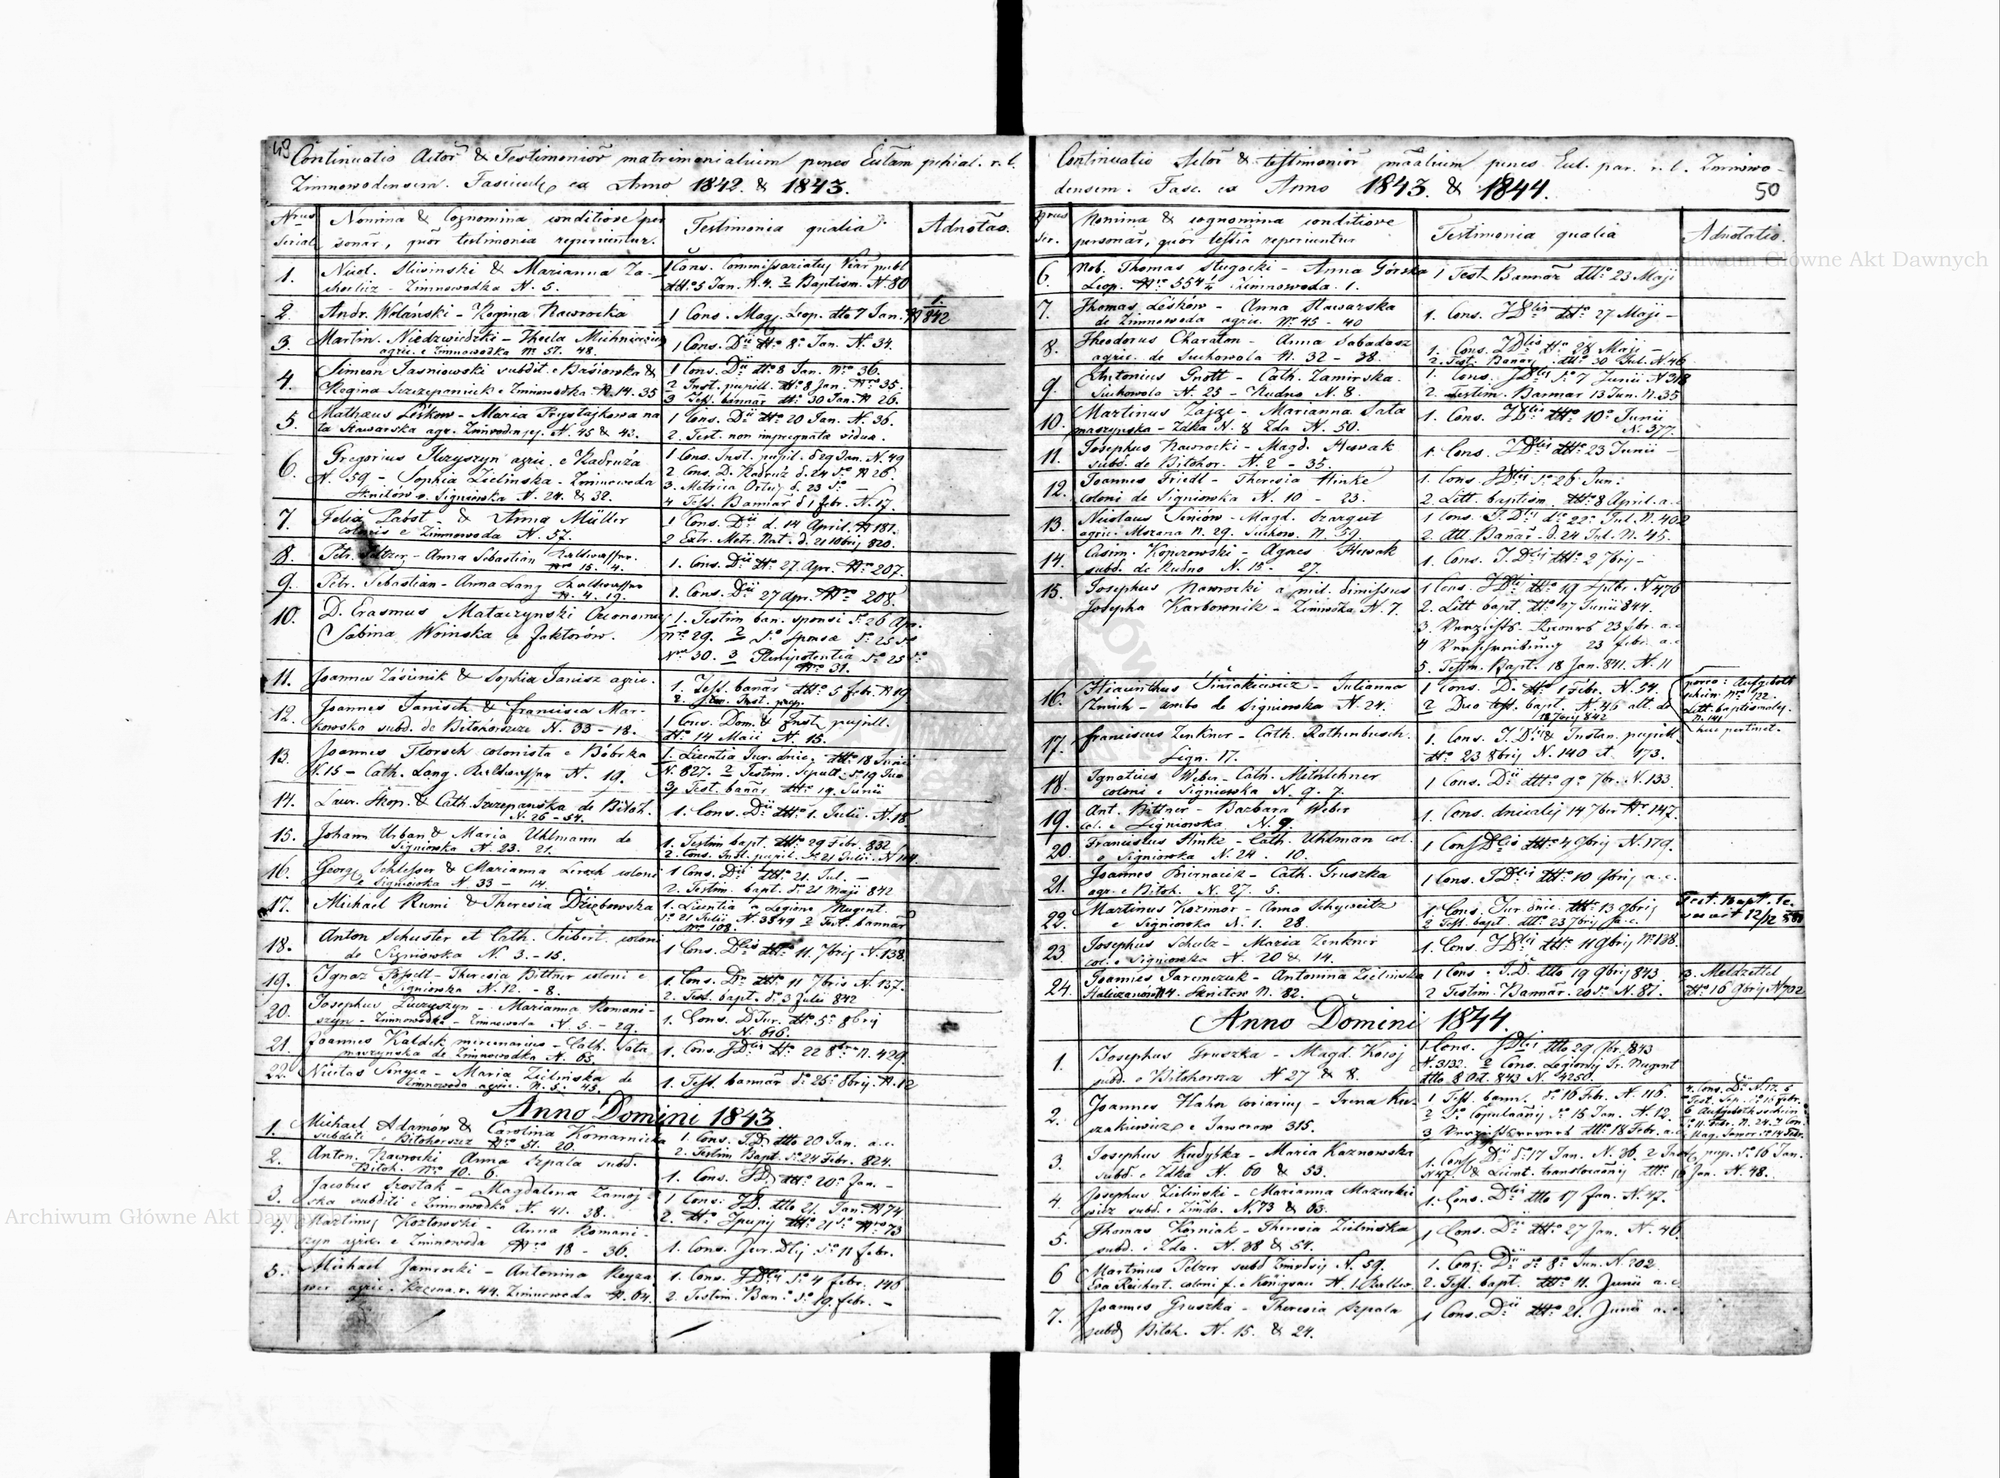 49
Continuatio Actor & Testimonior matrimonialium penes Eccl̃am pchial. r. l.
Zimnowodensem. Fascicule ex Anno 1842. & 1843.
Nrus Serial.
Nomina & Cognomina conditiove per
sonar̃, quor̃ testimonia reperiuntur.
Testimonia qualia
Adnotão.
1. Nicol. & Marianna Za-
Zimnowodka N. 5.
1 Cons. Commissariatus Viar̃ publ
ddto 5 Jan. N. 4. 2 Baptism. N. 80
2. Andr. Wolański - Regina Nawrocka
1 Cons. Mag. Leop. dto 7 Jan. N 1/842
3. Martin. Niedzwiedzki - Thecla
agric. e Zimnowodka N 57. 48.
1 Cons. Dii tto 8 Jan. N. 34.
4. Simeon Jasniowski subdit. e Basiowka &
Regina Szczepaniek e Zimnowodka N. 14. 35
1 Cons. Dii tto 8 Jan. Nro 36.
2 Inst. pupill. tto 8 Jan. Nro 35.
3 Test. bannar tto 30 Jan. N 26.
5. Mathæus Leskow - Maria Przystajkowa na
ta Stawarska agr. N. 45 & 43.
1 Cons. Dii tto 20 Jan. N. 36.
2. Test. non impregnatæ viduæ.
6. Gregorius agric. e Kadruża
N. 59 - Sophia Zielinska - Zimnowoda
e Signiowka N. 24. & 32.
1 Cons. Inst. pupil. d 29 Jan. N. 49
2 Cons. D. Kadruż d. 24 N 26.
3. Metrica Ortus d. 23
4 Test. Bannar d 1 febr. N. 17.
7. Felix Pabst - & Anna Müller
colonis e Zimnowoda N. 57.
1 Cons. Dii d. 14 April. N 181.
2 Extr. Metr. Nat. d. 21 10bris 820.
8. Petr. - Anna Sebastian Kaltwasser
Nro 15. 4.
1. Cons. Dii tto 27 Apr. Nro 207.
9. Petr. Sebastian - Anna Lang Kaltwasser
N. 4. 19.
1. Cons. Dii 27 Apr. Nro 208.
10. D. Erasmus Mataczynski Oeconomus
Sabina Woinska e Jaktorów.
1. Testim ban. sponsi 26 Apr.
Nro 29. 2 Sponsa 25
Nro 30. 3 Plenipotentia 25
Nro 31.
11. Joannes & Sophia Janisz agric.
1. Test. banar ddto 5 febr. N 19
2. Inst. pup.
12. Joannes Janisch & Francisca Mar-
kowska subd. de Bilohorszcze N. 33 - 18.
1 Cons. Dom. & Inst. pupill.
tto 14 Maii N. 15.
13. Joannes Florsch colonista e Bóbrka
N. 15 - Cath. Lang. Kaltwasser N. 19.
1. Licentia Jur. dnic. ddto 18 Junii
N. 827. 2 Testim. Sepult. 19 Jun
3 Test. banar ddto 19. Junii
14. Laur. Skop. & Cath. Szczepanska de Biloh.
N. 26 - 54.
1. Cons. Dii ddto 1. Julii. N. 18
15. Johann Urban & Maria Uhlmann de
Signiowka N. 23. 21.
1. Testim bapt. ddto 29 Febr. 832
2. Cons. Inst. pupil. 21 Julii. N 114.
16. Georg Schlosser & Marianna Lersch coloni
e Signiowka N. 33 - 14.
1 Cons. Dii ddto 21. Jul. -
2. Testim. bapt. 21 Maji 842
17. Michael Rumi & Theresia Dziębowska
1. Licentia a Legione Nugent.
21 Julii N. 3849 2 Test. bannar
Nro 108.
18. Anton Schuster et Cath. Seibert coloni
de Signiowka N. 3. - 15.
1 Cons. Dlis ddto 11. 7bris N. 138.
19. Ignaz Posselt - Theresia Bittner coloni e
Signiowka N. 12. - 8.
1. Cons. Dii ddto 11 7bris N. 137.
2. Test. bapt. 3 Julii 842
20. Josephus - Marianna Romani-
szyn - Zimnowodka - Zimnowoda N. 5. - 29.
1. Cons. D Jur. ddto 5 8bris
N. 616.
21. Joannes Kaldek mercenarius - Cath. Sata
maszynska de Zimnowodka N. 63.
1. Cons. JDlis tto 22 8bris N. 429.
22. Nicetas Senyca - Maria Zielińska de
Zimnowoda agric. N. 5. 45.
1. Test. bannar 26 8bris. N. 12
Anno Domini 1843.
1. Michael Adamów & Carolina Komarnicka
subditi e Bilohorszcz Nro 51. 20.
1. Cons. JD. dto 20 Jan. a.c.
2. Testim Bapt. 24 Febr. 824.
2. Anton. Nawrocki Anna Szpala subd.
Biloh. Nro 10. 6.
1. Cons. JD. ddto 20 Jan. -
3. Jacobus Szostak - Magdalena Zamoj-
ska subditi e Zimnowodka N. 41. 38.
1 Cons. JD. dto 21. Jan. N 74
2. tto Jpupis ddto 21 Nro 73
4. Martinus Kozłowski - Anna Romani-
szyn agric. e Zimnowoda Nro 18 - 36.
1. Cons. Jur. Dlis 11 febr.
5. Michael Jamrocki - Antonina
agric. N. 44. Zimnowoda N. 64.
1. Cons. JDlis 4 febr. 146
2. Testim. Ban. 19 febr. -
Continuatio Actor̃ & testimonior̃ mãalium penes Eccl. par. r. l. Zimnowo-
densem. Fasc. ex Anno 1843. & 1844.
50
Nrus Ser.
Nomina & cognomina conditiove
personar̃, quor̃ testia reperiuntur
Testimonia qualia
Adnotatio.
6. Nob. Thomas - Anna Górska
Leop. Nro 554 2/4 Zimnowoda. 1.
1 Test. Bannar ddto 23 Maji
7. Thomas Leśków - Anna Stawarska
de Zimnowoda agric. Nro 45 - 40
1. Cons. JDlis ddto 27 Maji -
8. Theodorus Charaton - Anna Sabadosz
agric. de Suchowola N. 32 - 38.
1. Cons. JDlis tto 28 Maji -
2. Test. Banar ddto 30 Jul. N 46
9. Antonius Grott - Cath. Zamirska.
Suchowola N. 25 - Rudno N. 8.
1. Cons. JDlis 7 Junii N 318
2. Testim. Bannar 13 Jun. N. 35
10. Martinus Zając - Marianna Sata
maszynska - Zdka N. 8 Zda N. 50.
1. Cons. JDlis ddto 10 Junii
N. 377.
11. Josephus Nawrocki - Magd. Nowak
subd. de Bilohor. N. 2 - 35.
1. Cons. JDlis ddto 23 Junii -
12. Joannes Friedl - Theresia Hinke
coloni de Signiowka N. 10 - 23.
1. Cons JDlis 26 Jun:
2. Litt. baptism. ddto 8 April. a.c
13. Nicolaus Siniów - Magd. Szargut
agric. Mszana N. 29. Suchow. N. 59.
1 Cons. J. Dlis d. 22 Jul. N. 402
2. Att. Banar d. 24 Jul. N. 45.
14. Casim. Koprowski - Agnes Nowak
subd. de Rudno N. 15. 27.
1. Cons. J. Dlis ddto 2 7bris -
15. Josephus Nawrocki a mil. dimissus
Josepha Karbownik - Zimwodka N. 7.
1 Cons. JDlis ddto 19 Septbr N 476
2. Litt bapt. ddto 17 Junii 844.
3. Verzichts- 23 febr. a.c
4 Verschreibung 23 febr. a.c
5. Testm. Bapt. 18 Jan. 841. N. 11
16. Hiacinthus Siniakiewicz - Julianna
- ambo de Signiowka N. 24.
1 Cons. Dii ddto 1 Febr. N. 54.
2 Duo test. bapt. N. 46 alt. dd
18 Junij 842
porro: Aufgeboth
schein Nro 122.
Litt. baptismales
N. 141
huc pertinet.
17. Franciscus Zenkner - Cath. Rothenbusch.
Sign. 17.
1. Cons. J. Dlis & Instan. pupill
ddto 23 8bris N. 140 et 473.
18. Ignatius Weber - Cath. Metrlehner
coloni e Signiowka N. 9. 7.
1 Cons. Dii ddto 9 7br. N. 133.
19. Ant. Bittner - Barbara Weber
col. e Signiowka N. 9.
1. Cons. dnicalis 14 7ber Nr 147.
20. Franciscus Hinke - Cath. Uhlman col.
e Signiowka N. 24. 10.
1 Cons Dlis ddto 4 9bris N. 179.
21. Joannes Biernacik - Cath. Gruszka
agr. e Biloh. N. 27. 5.
1 Cons. JDlis ddto 10 9bris a.c.
22. Martinus Kozimor - Anna Schyweitz
e Signiowka N. 1. 28.
1 Cons. Jur dnic. ddto 13 9bris
2 Test. bapt. ddto 23 7bris a.c.
Test. bapt. 12/12 880
23. Josephus Schulz - Maria Zenkner
col. e Signiowka N. 20 & 14.
1. Cons. JDlis ddto 11 9bris N. 138.
24. Joannes Jaremczuk - Antonina Zielinska
N. 82.
1 Cons. J.D. dto 19 9bris 843
2 Testim. Bannar. 20 N. 81.
3. Meldzettel
ddto 16 9bris N 702
Anno Domini 1844.
1. Josephus Gruszka - Magd. Kocoj
subd. e Bilohorszcz N 27 & 8.
1. Cons. JDlis dto 29 9br. 843
N. 3132. 2 Cons. Legionis Pr. Nugent
dto 8 Oct. 843 N. 4250.
2. Joannes Hahn coriarius - Irena Ku-
szakiewicz e Janorow 315.
1 Test. bann. 16 Feb. N. 116.
2 copulationis 15 Jan. N. 12.
3 ddto 18 Febr. a.c
4. Cons. Dii N. 17. 5
Test. Sep. 16 Febr.
6 Aufgebothschein
11. Febr. N. 24. 7 Con.
Mag. Janor. 14 Febr.
3. Josephus Kudybka - Maria Kaznowska
subd. e Zdka N. 60 & 53.
1. Cons Dii 17 Jan. N. 36. 2 Inst. pup. 16 Jan.
N 47. & Licent. translocationis ddto 16 Jan. N. 48.
4. Josephus Zieliński - Marianna Mazurkie
wicz subd. e Zimda. N. 73 & 63.
1. Cons. Dlis dto 17 Jan. N. 47.
5. Thomas Korniak - Theresia Zielińska
subd. e Zda. N. 38 & 54.
1 Cons. Dii ddto 27 Jan. N. 40.
6 Martinus Pelzer subd Zimwdsis N. 59.
Eva Reichert coloni f. e Königsau N. 1. Kaltw.
1. Cons. Dii 8 Jun. N. 202.
2. Test. bapt. ddto 11. Junii a.c
7. Joannes Gruszka - Theresia Szpala
subd Biloh. N. 15. & 24.
1 Cons. Dii ddto 21. Junii a.c.
Archiwum Główne Akt Dawnych
Archiwum Główne Akt Dawnych